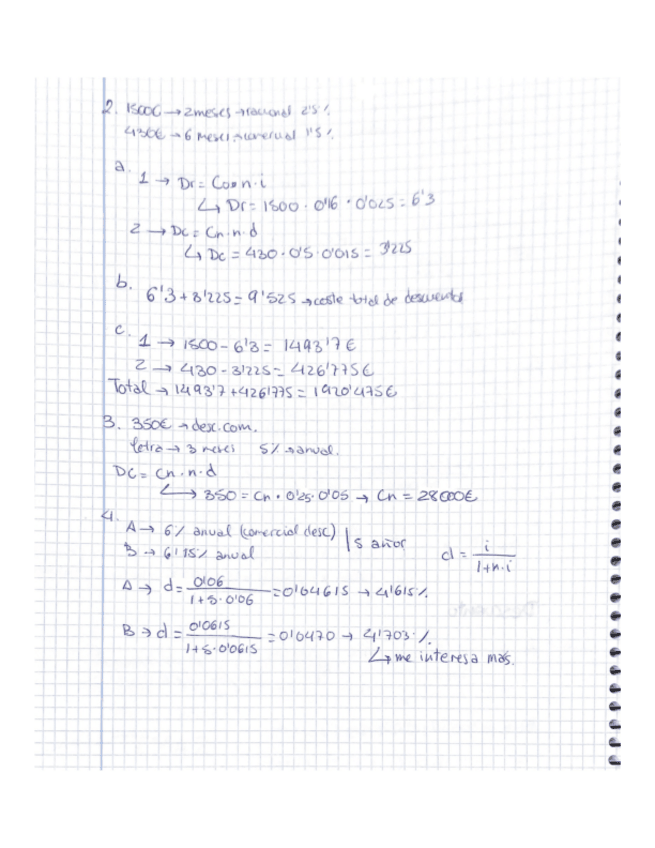 2. 1500€ → 2 meses → racional 2'5%
430€ → 6 meses → comercial 1'5%
a.
1 → Dr = Co · n · i
↳ Dr = 1500 · 0'16 · 0'025 = 6'3
2 → Dc = Cn · n · d
↳ Dc = 430 · 0'5 · 0'015 = 3'225
b.
6'3 + 3'225 = 9'525 → coste total de descuento
c.
1 → 1500 - 6'3 = 1493'7€
2 → 430 - 3'225 = 426'775€
Total → 1493'7 + 426'775 = 1920'475€
3. 350€ → desc. com.
letra → 3 meses 5% → anual.
DC = Cn · n · d
↳ 350 = Cn · 0'25 · 0'05 → Cn = 28000€
4.
A → 6% anual (comercial desc) | 5 años
B → 6'15% anual
d = i / 1+n·i
A → d = 0'06 / 1+5·0'06 = 0'04615 → 4'615%
B → d = 0'0615 / 1+5·0'0615 = 0'0470 → 4'703%
↳ me interesa más.